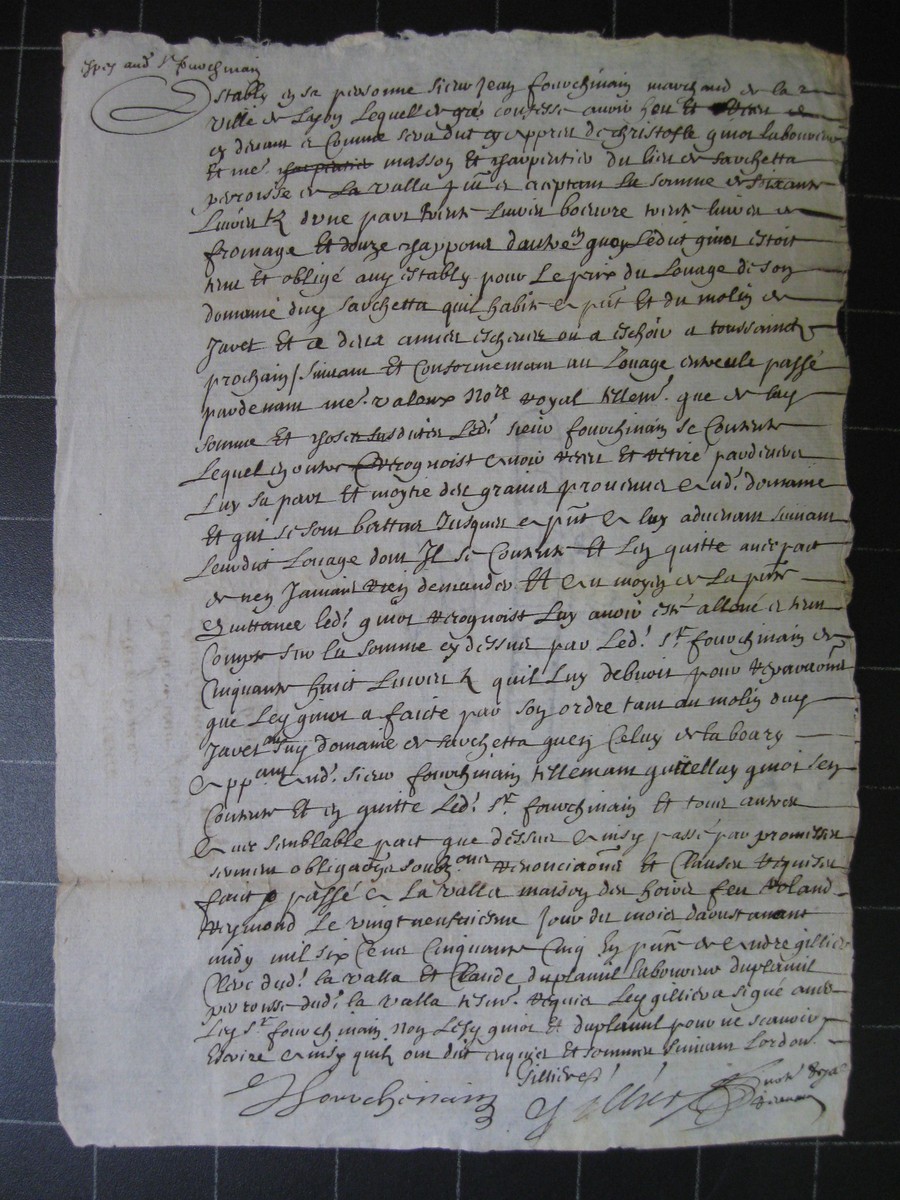 Estably en sa personne sieur Jean fourchinain marchand de la
ville de Lyon Lequel de gré confesse avoir heu et
cy devant et Comme sera dict cy appres de christofle guiot laboureur
et me. charpentier masson et charpentier du lieu de sarchetta
parroisse de la valla pnt et aceptant la somme de soixante
Livres d'une part trente livres beeurre trente livres de
fromage et douze chappons d'autre en quoy ledict guiot estoit
tenu et obligé aux estably pour le prix du Louage de son
domaine dud sarchetta quil habite a pnt et du molin de
Javet et de deux annees escheues ou a eschoir a toussainct
prochain / suivant et Conformement au Louage entreulx passé
pardevant me. valoux nore royal tellemt. que de lad
somme et choses susdites Led. sieur fourchinain se Contente
Lequel en outre recognoist avoir receu et retiré pardevers
Luy sa part et moytie des grains provenus aud. domaine
et qui se sont battus Jusques a pnt a luy advenant suivant
Leurdict Louage dont Il se Contente et Len quitte avec pact
de nen Jamais rien demander Et au moyen de la pnte
quittance led. guiot recognoist Luy avoir esté alloué et tenu
Compte sur la somme cy dessus par Led. sr. fourchinain de
Cinquante huict Livres quil Luy debvoit pour reparaons
que Led guiot a faicte par son ordre tant au molin dud
Javet aud domaine de sarchetta quen Celuy de la boary
appant aud. sieur fourchinain tellemant guiot sen
Contente et en quitte Led. sr. fourchinain et tous autres
avec semblable pact que dessus ainsy passé par promesses
serment obligaons soubz ons renonciaons et clauses requises
faict et passé a La valla maison des hoirs feu roland
reymond Le vingt neufviesme Jour du mois daoust avant
midy mil six cens Cinquante Cinq En pnce de andre gillier
Clerc dud. la valla et Claude duplamil laboureur duplamil
perroisse dud. la valla tesm. requis Led gillier a signé avec
Led sr. fourchinain non Lesd guiot et duplamil pour ne scavoir
Escrire ainsy quilz ont dict enquis et sommes suivant Lordon.
Gillier
fourchinain